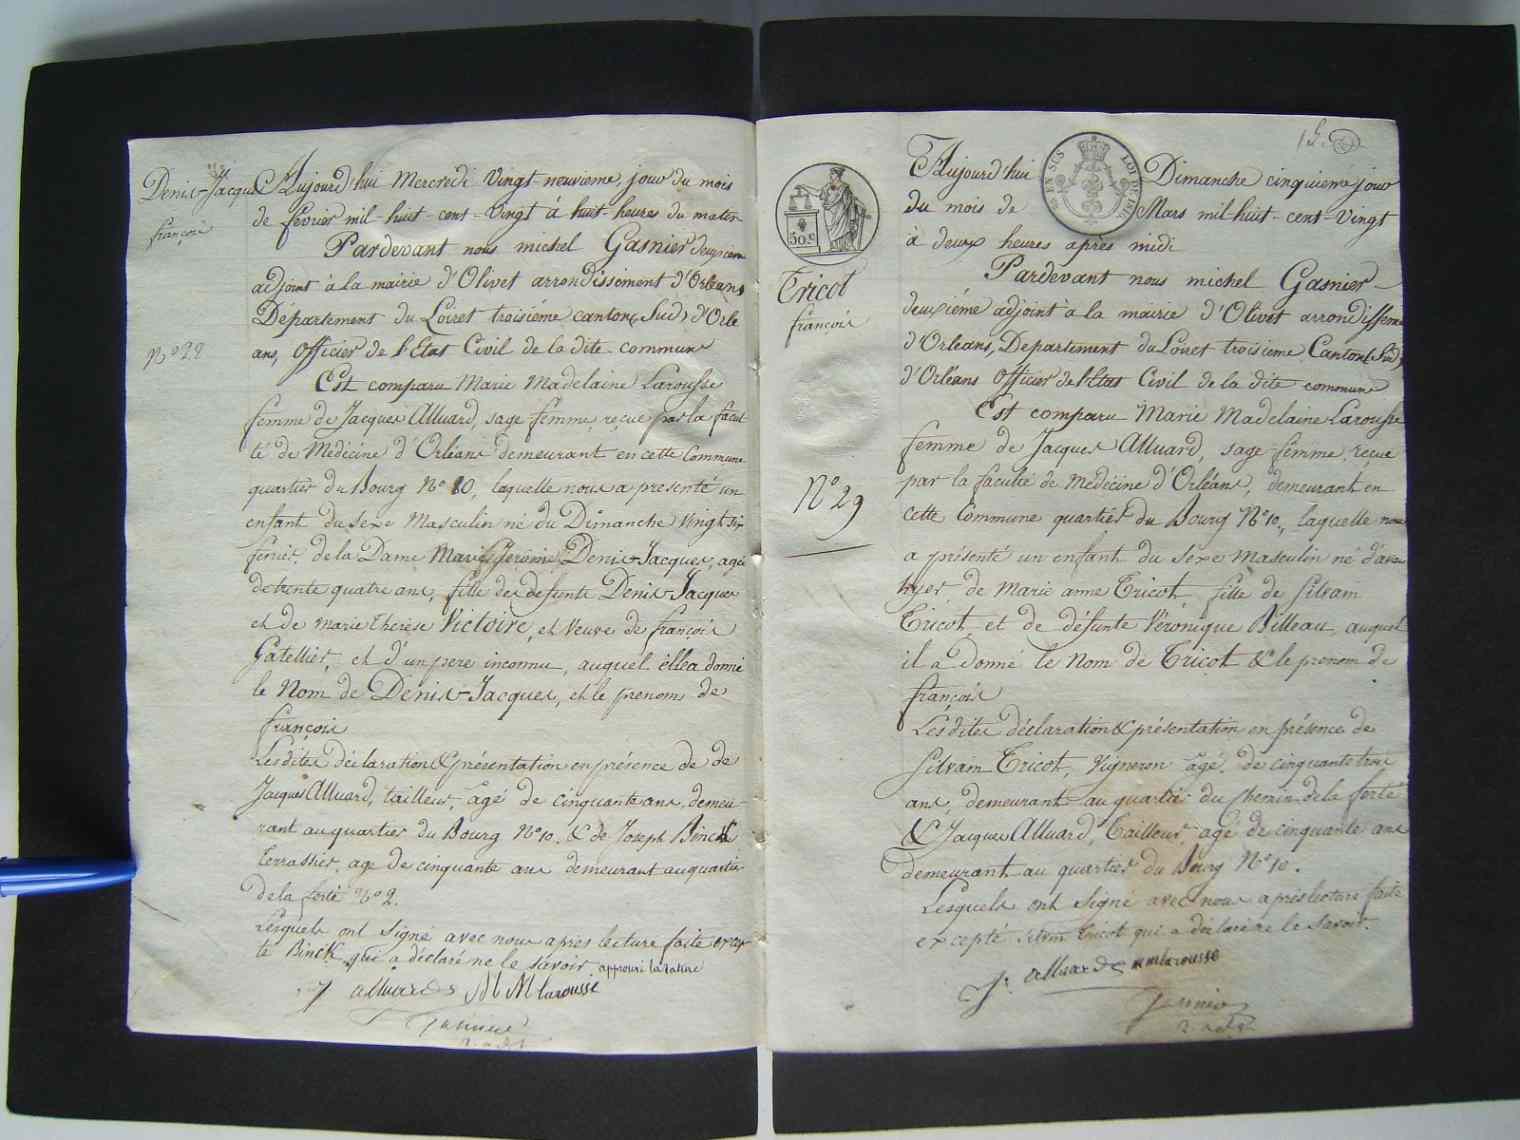 Denis-Jacques
françois
N° 28
Aujourd'hui Mercredi Vingt-neuvieme jour du mois
de fevrier mil-huit-cent-Vingt à huit-heures du matin
Pardevant nous michel Gasnier deuxiem
adjoint à la mairie d'Olivet arrondissement d'Orleans
Département du Loiret troisiéme canton (Sud) d'Orle
ans, officier de l'Etat Civil de la dite commune
Est comparu Marie Madelaine Larousse
femme de Jacques Alluard, sage femme, reçue par la facul
té de Médecine d'Orléans demeurant en cette Commune
quartier du Bourg N° 10, laquelle nous a presenté un
enfant du sexe Masculin né du Dimanche Vingt six
fevrier de la Dame Marie Denis-Jacques, agée
de trente quatre ans, fille de defunts Denis-Jacques
et de marie therèse Victoire, et Veuve de françois
Gatellier, et d'un pere inconnu, auquel ellea donné
le Nom de Denis-Jacques, et le prenoms de
françois
Lesdites déclaration & présentation en présence de de
Jacques Alluard, tailleur, agé de cinquante ans, demeu-
rant au quartier du Bourg N° 10. & de Joseph Binck
terrassier, age de cinquante ans demeurant au quartier
de la ferté N° 2.
Lesquels ont signé avec nous après lecture faite excep
té Binck qui a déclaré ne le savoir. approuvé la rature
J alluard MM larousse
Gasnier
2. adjt
15.
EN SUS
LOI DE 1816
50.c
Tricot
françois
N° 29
Aujourd'hui Dimanche cinquieme jour
du mois de Mars mil-huit-cent-Vingt
à deux heures après midi
Pardevant nous michel Gasnier
deuxiéme adjoint à la mairie d'Olivet arrondisseme
d'Orleans, Departement du Loiret troisieme Canton (Sud)
d'Orléans officier de l'Etat Civil de la dite commune
Est comparu Marie Madelaine Larousse
femme de Jacques Alluard, sage femme, reçue
par la faculté de Medecine d'Orléans, demeurant en
cette Commune quartier du Bourg N° 10, laquelle nous
a présenté un enfant du sexe Masculin né d'avan
hyer, de Marie anne Tricot fille de Silvain
Tricot, et de défunte Véronique Billeau, auquel
il a donné le Nom de Tricot & le prenom de
françois
Lesdites déclaration & présentation en présence de
Silvain Tricot, Vigneron agé de cinquante trois
ans, demeurant au quartier du chemin de la ferté
& Jacques Alluard, Tailleur, agé de cinquante ans
demeurant au quartier du Bourg N° 10.
Lesquels ont signé avec nous après lecture faite
excepté Silvain Tricot qui a déclaré ne le savoir.
J. alluard mmlarousse
Gasnier
2. adjt